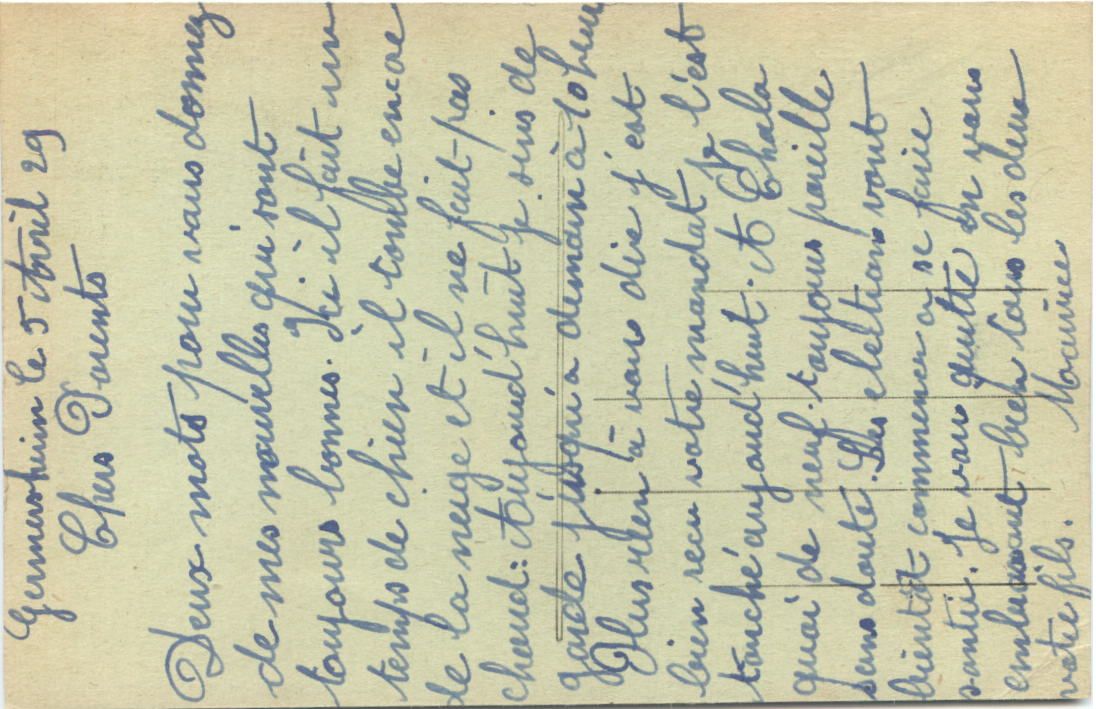 Germersheim le 5 Avril 29
Chers Parents
Deux mots pour vous donnez
de mes nouvelles qui sont
toujours bonnes. Ici il fait un
temps de chien il tombe encore
de la neige et il ne fait pas
chaud: Aujourd'huit je suis de
garde jusqu'a demain à 10 heur
Plus rien à vous dire j'est
bien recu votre mandat je l'est
touché aujourd'huit. A Chala
quoi de neuf. toujours pareille
sans doute. Les elections vont
bientot commencer a se faire
sentir. Je vous quitte en vous
embrassant bien tous les deux
votre fils. Maurice